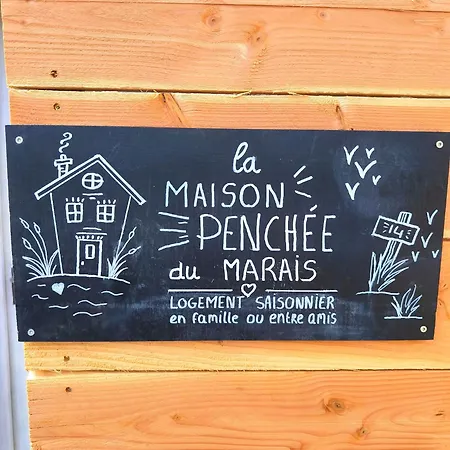 la
MAISON
PENCHÉE
du MARAIS
LOGEMENT SAISONNIER
en famille ou entre amis
14